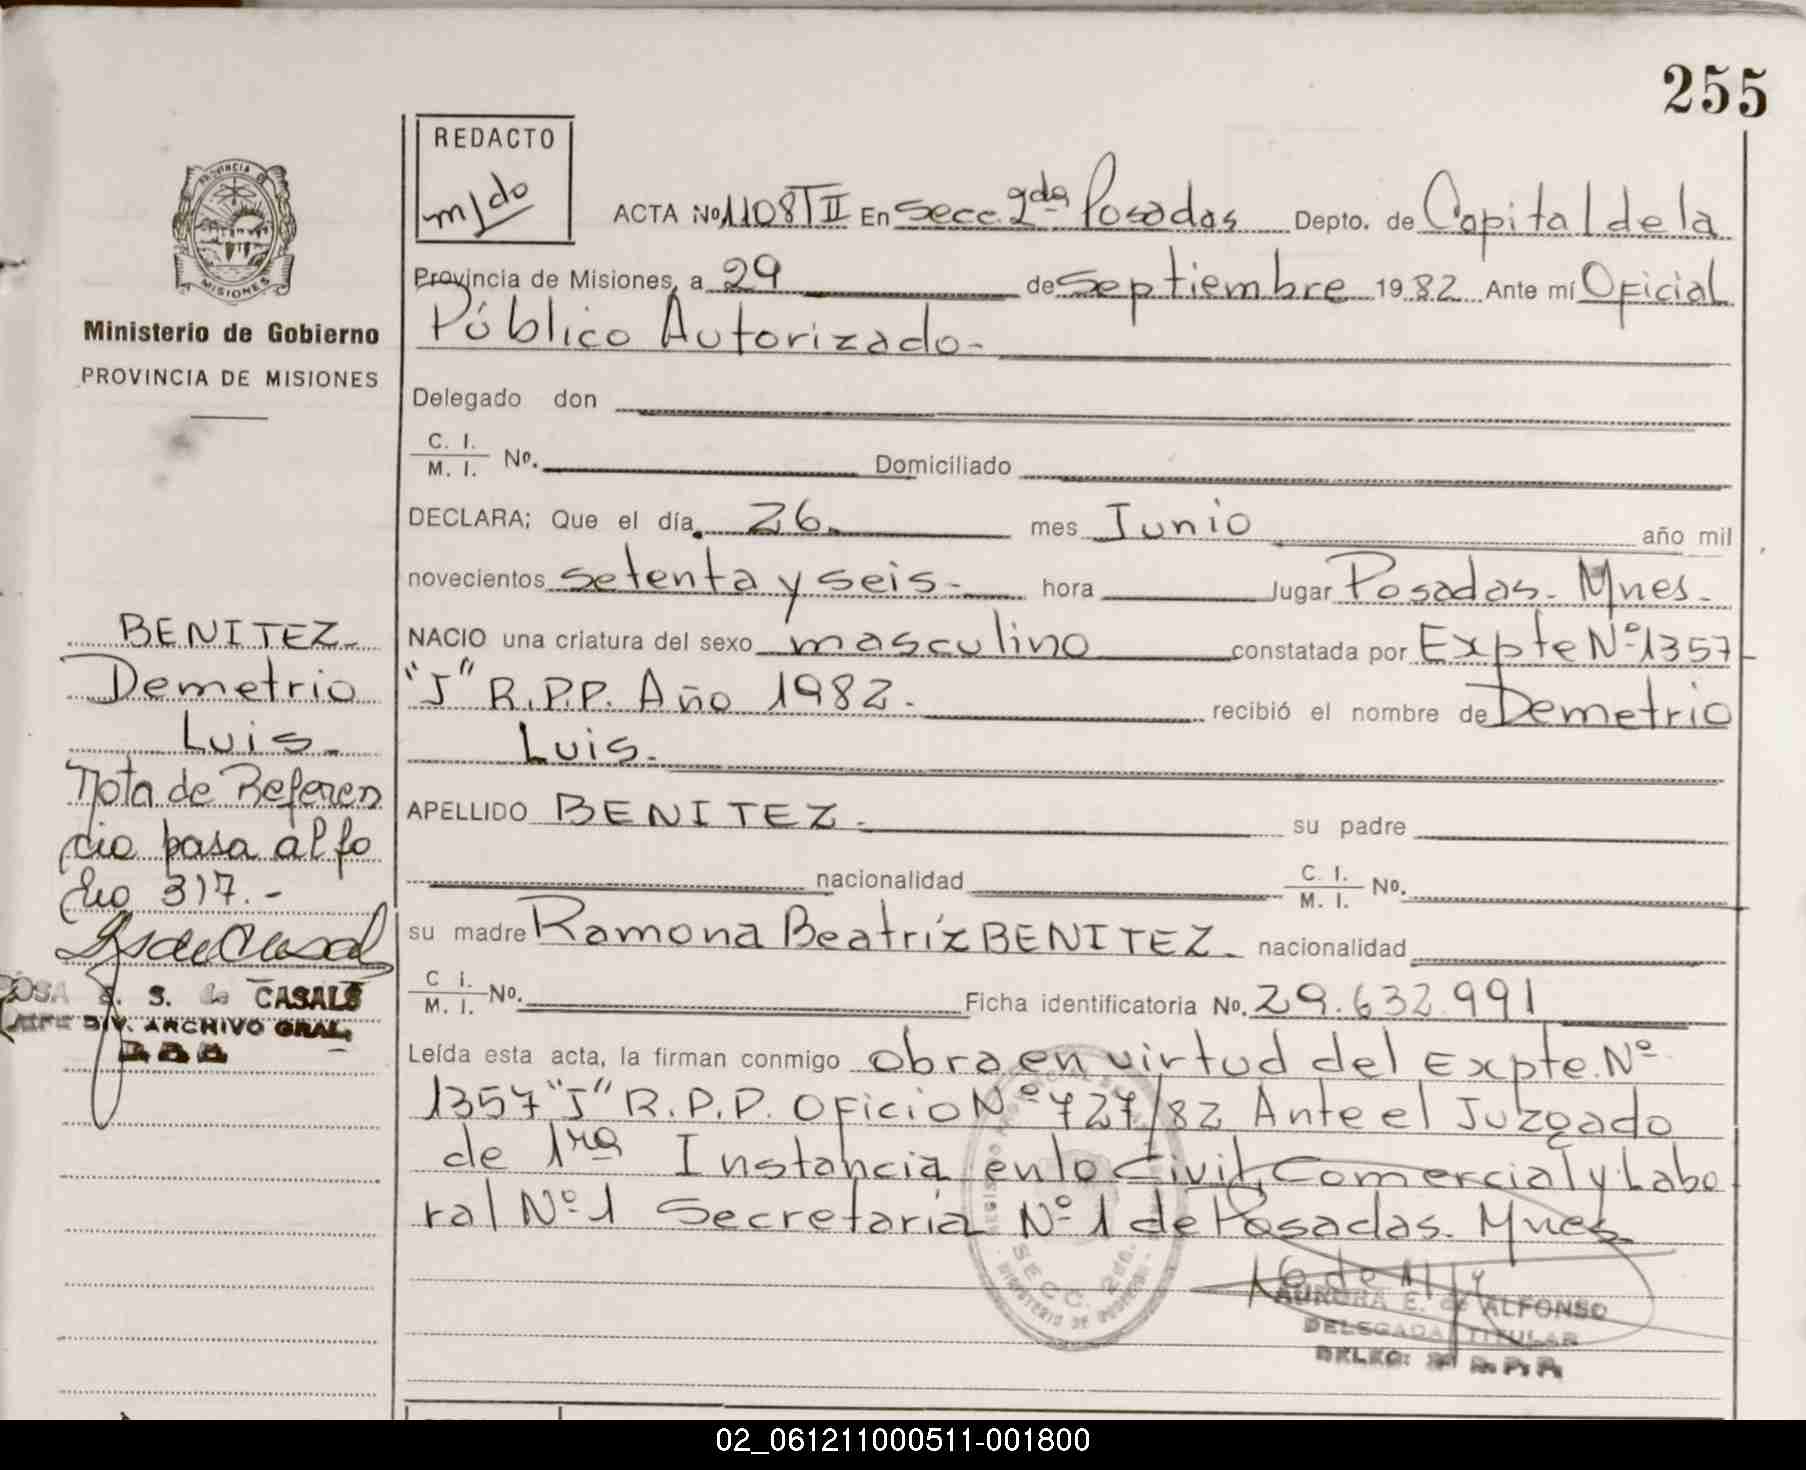 255
REDACTO
m/do
ACTA No 1108 T II En Secc. 2da Posadas Depto. de Capital de la
Provincia de Misiones, a 29 de Septiembre 1982 Ante mí Oficial
Público Autorizado-
Delegado don
C. I.
M. I. No. Domiciliado
DECLARA; Que el día 26 mes Junio año mil
novecientos setenta y seis- hora lugar Posadas- Mnes-
NACIO una criatura del sexo masculino constatada por Expte Nº 1357
"J" R.P.P. Año 1982- recibió el nombre de Demetrio
Luis-
APELLIDO BENITEZ- su padre
nacionalidad C. I.
M. I. No.
su madre Ramona Beatríz BENITEZ- nacionalidad
C. I.
M. I. No. Ficha identificatoria No. 29.632.991
Leída esta acta, la firman conmigo obra en virtud del Expte. Nº
1357 "J" R.P.P. Oficio Nº 727/82 Ante el Juzgado
de 1ra Instancia en lo Civil, Comercial y Labo
ral Nº 1 Secretaría Nº 1 de Posadas- Mnes-
SECC. 2da.
AURORA E. de ALFONSO
DELEGADA TITULAR
PROVINCIA DE
MISIONES
Ministerio de Gobierno
PROVINCIA DE MISIONES
BENITEZ-
Demetrio
Luis-
Nota de Referen
cia pasa al fo
lio 317.-
S. de CASALS
DIV. ARCHIVO GRAL.
02_061211000511-001800